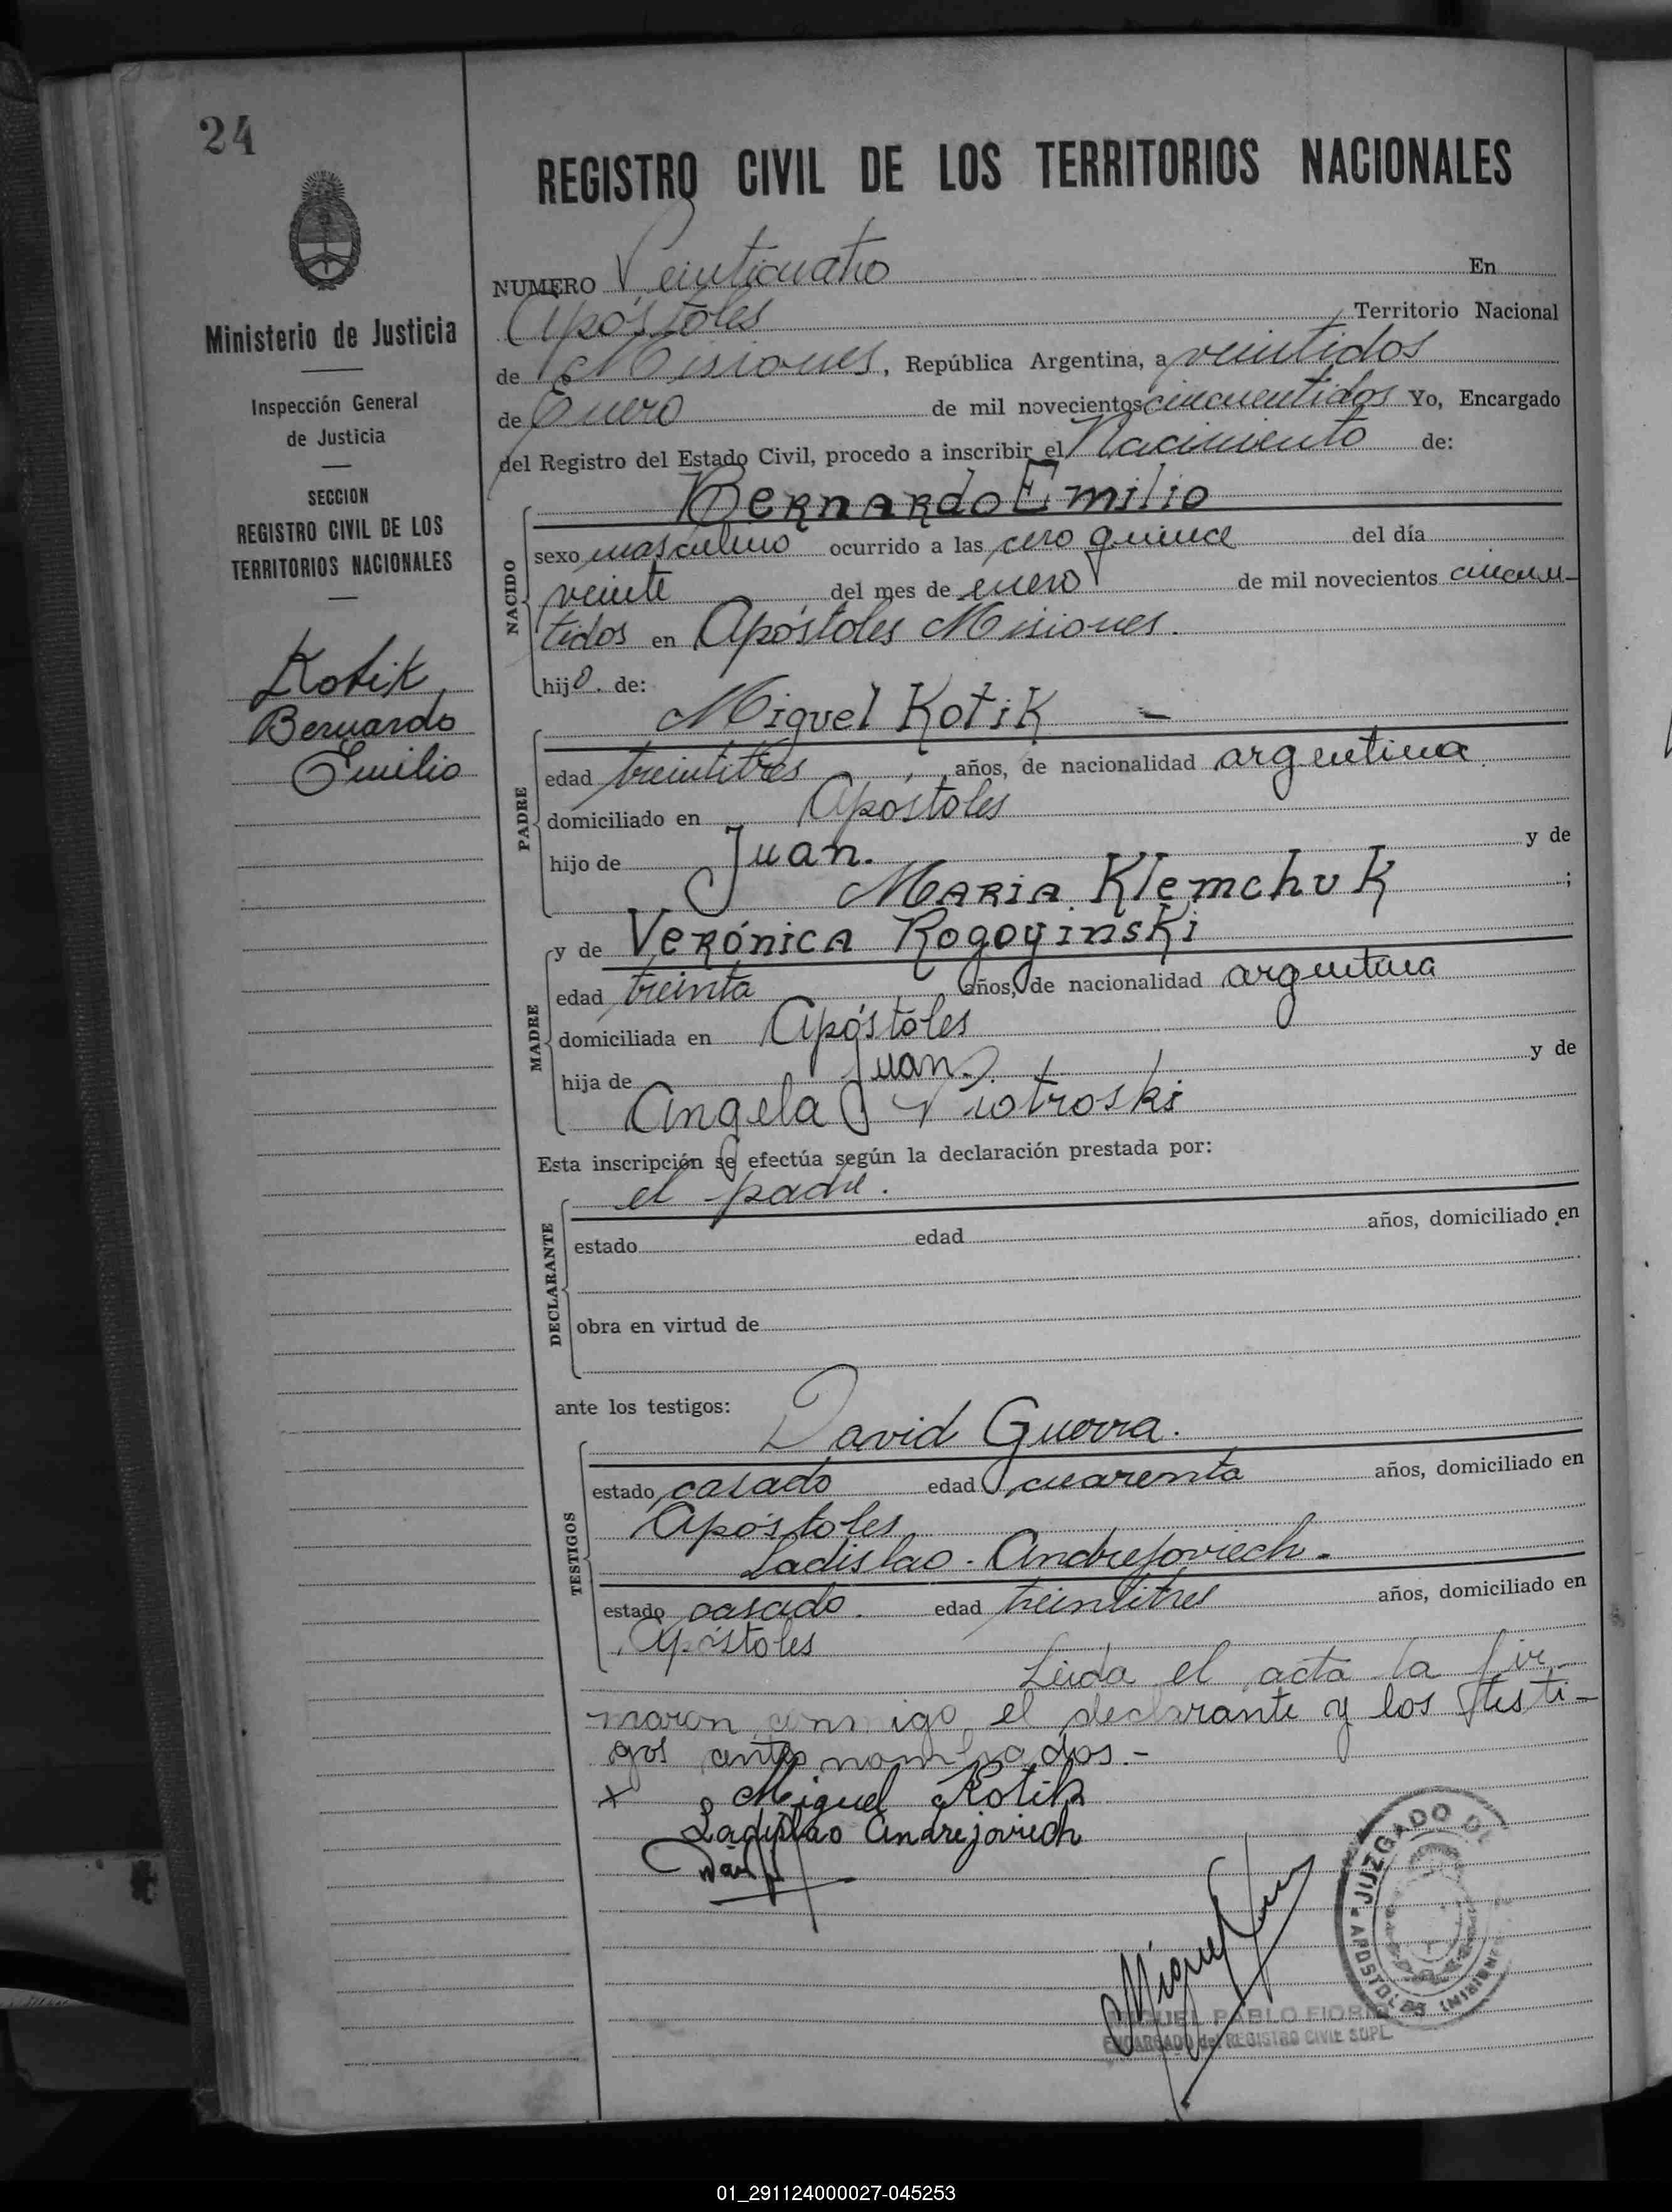 24
REGISTRO CIVIL DE LOS TERRITORIOS NACIONALES
Ministerio de Justicia
Inspección General
de Justicia
SECCION
REGISTRO CIVIL DE LOS
TERRITORIOS NACIONALES
Kotik
Bernardo
Emilio
NUMERO Veinticuatro En
Apóstoles Territorio Nacional
de Misiones, República Argentina, a veintidos
de Enero de mil novecientos cincuentidos Yo, Encargado
del Registro del Estado Civil, procedo a inscribir el Nacimiento de:
NACIDO
Bernardo Emilio
sexo masculino ocurrido a las cero quince del día
veinte del mes de enero de mil novecientos cincuen-
tidos en Apóstoles Misiones.
hijo. de:
PADRE
Miguel Kotik -
edad treintitres años, de nacionalidad argentina
domiciliado en Apóstoles
hijo de Juan. y de
Maria Klemchuk ;
MADRE
y de Verónica Rogoyinski
edad treinta años, de nacionalidad argentina
domiciliada en Apóstoles
hija de Juan. y de
Angela Piotroski
Esta inscripción se efectúa según la declaración prestada por:
DECLARANTE
el padre.
estado edad años, domiciliado en
obra en virtud de
ante los testigos:
TESTIGOS
David Guerra.
estado casado edad cuarenta años, domiciliado en
Apóstoles
Ladislao - Andrejoviech -
estado casado. edad treintitres años, domiciliado en
Apóstoles
Leida el acta la fir-
maron conmigo el declarante y los testi-
gos antes nombrados.-
x Miguel Kotik
Ladislao Andrejoviech
JUZGADO DE
APOSTOLES (MISIONES
MIGUEL PABLO FIORIO
ENCARGADO del REGISTRO CIVIL SUPL.
01_291124000027-045253